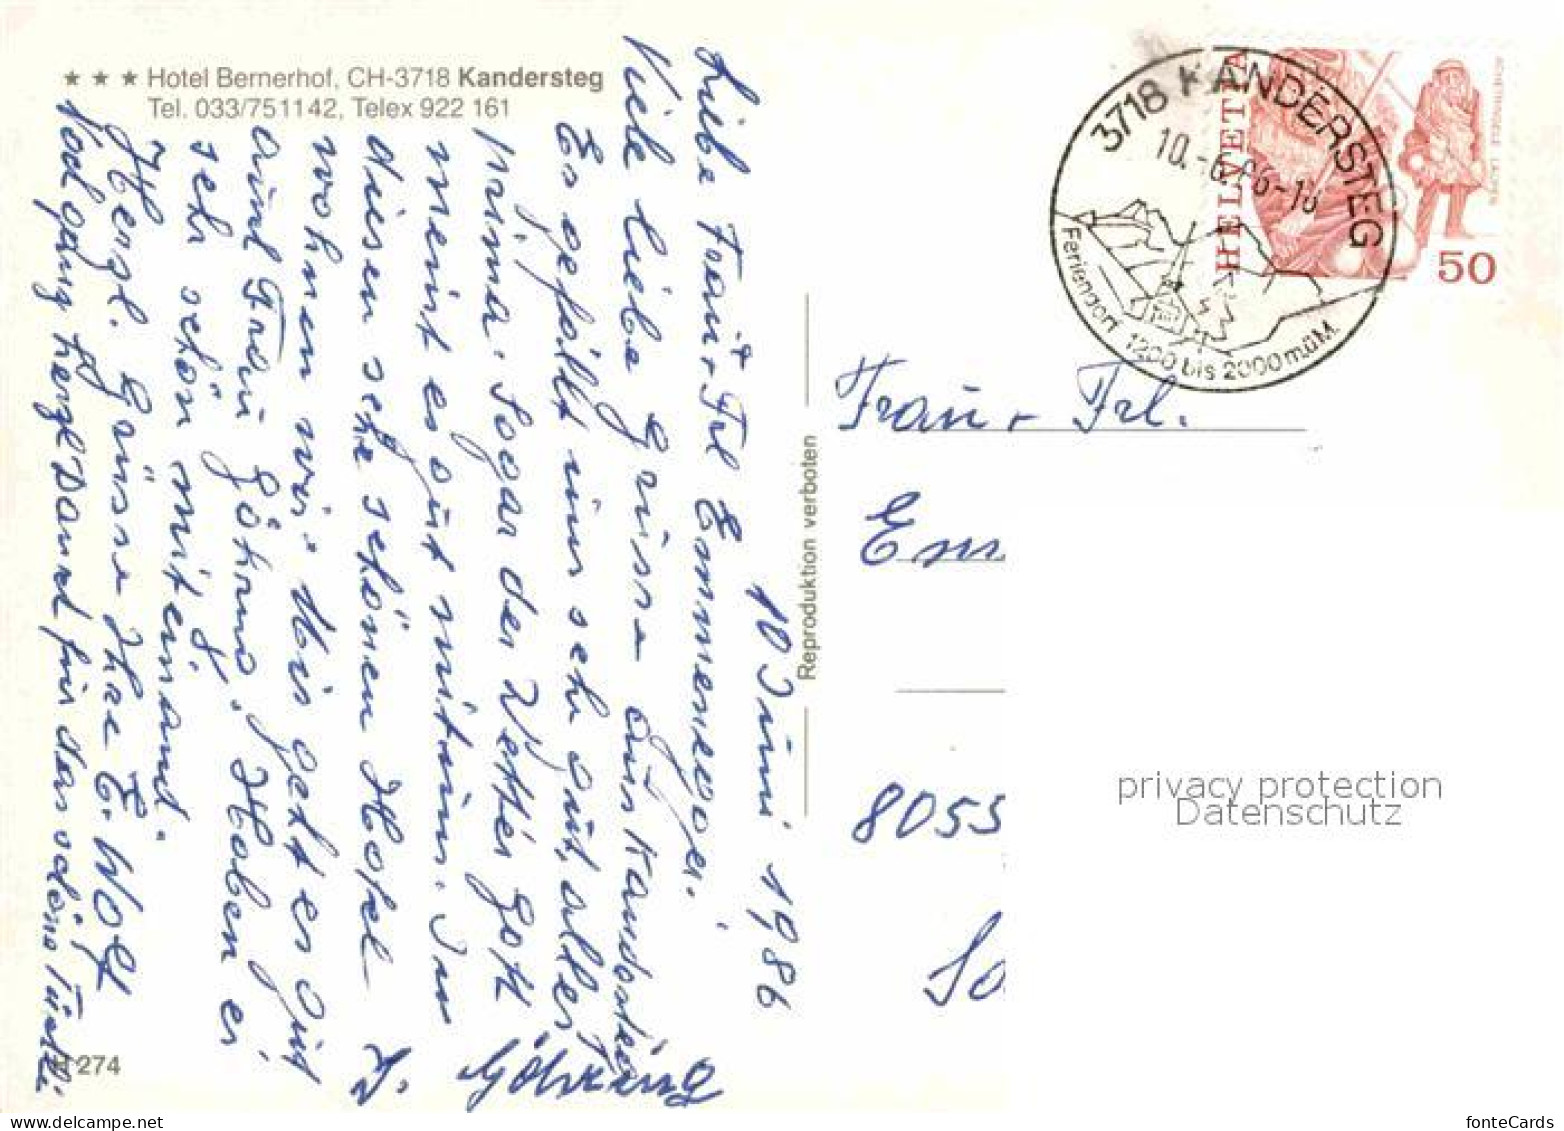 ★ ★ ★ Hotel Bernerhof, CH-3718 Kandersteg
Tel. 033/751142, Telex 922 161
10 Juni 1986
Liebe Frau + Frl Emmenegger.
Viele liebe Grüsse aus Kandersteg
Es gefällt uns sehr gut, alles
prima. Sogar der Wetter Gott
meint es gut mit uns. In
diesem sehr schönen Hotel
wohnen wir. Mir geht es gut
und Frau Göhring. Haben es
sehr schön miteinand.
Herzl. Grüsse Ihre E. Wolf
Noch ganz herzl Dank für das schöne Tüechli
Göhring
H 274
Reproduktion verboten
3718 KANDERSTEG
10.-6.86-18
Feriendorf 1200 bis 2000 m.ü.M.
HELVETIA
50
Frau + Frl.
Emm
8055
privacy protection
Datenschutz
fonteCards